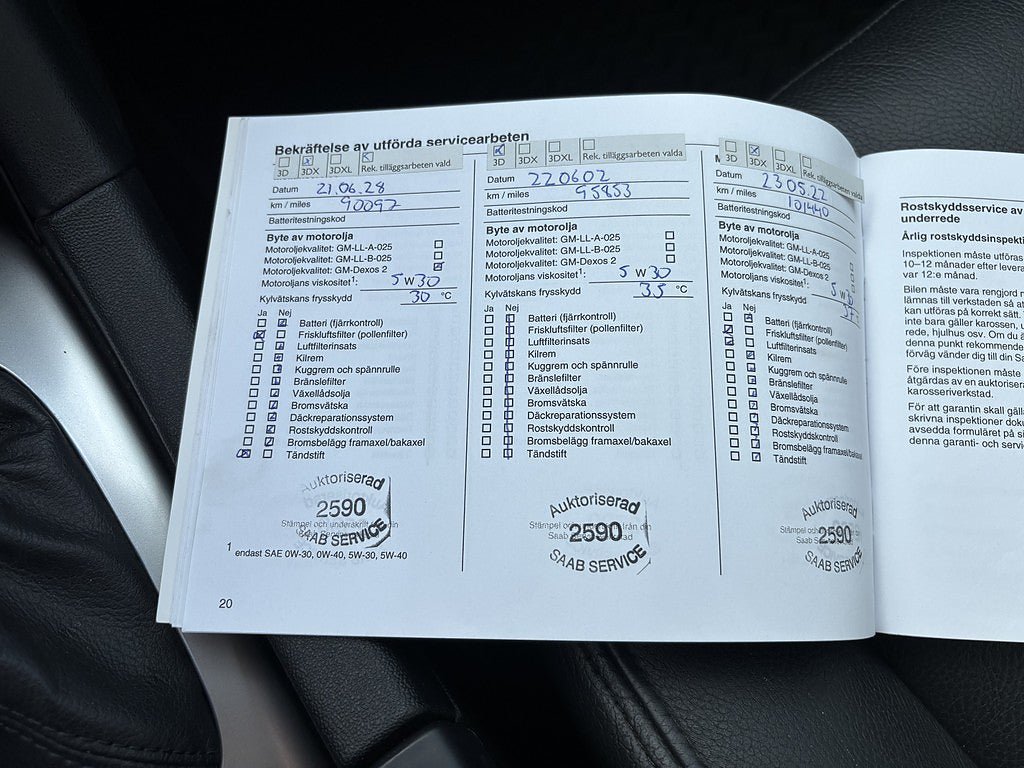 Bekräftelse av utförda servicearbeten
3D 3DX 3DXL Rek. tilläggsarbeten valda
Datum 21.06.28
km / miles 90097
Batteritestningskod
Byte av motorolja
Motoroljekvalitet: GM-LL-A-025
Motoroljekvalitet: GM-LL-B-025
Motoroljekvalitet: GM-Dexos 2
Motoroljans viskositet1: 5 W 30
Kylvätskans frysskydd 30 °C
Ja Nej
Batteri (fjärrkontroll)
Friskluftsfilter (pollenfilter)
Luftfilterinsats
Kilrem
Kuggrem och spännrulle
Bränslefilter
Växellådsolja
Bromsvätska
Däckreparationssystem
Rostskyddskontroll
Bromsbelägg framaxel/bakaxel
Tändstift
Auktoriserad
2590
Stämpel och underskrift från din
SAAB SERVICE
1 endast SAE 0W-30, 0W-40, 5W-30, 5W-40
20
3D 3DX 3DXL Rek. tilläggsarbeten valda
Datum 220602
km / miles 95853
Batteritestningskod
Byte av motorolja
Motoroljekvalitet: GM-LL-A-025
Motoroljekvalitet: GM-LL-B-025
Motoroljekvalitet: GM-Dexos 2
Motoroljans viskositet1: 5 W 30
Kylvätskans frysskydd 35 °C
Ja Nej
Batteri (fjärrkontroll)
Friskluftsfilter (pollenfilter)
Luftfilterinsats
Kilrem
Kuggrem och spännrulle
Bränslefilter
Växellådsolja
Bromsvätska
Däckreparationssystem
Rostskyddskontroll
Bromsbelägg framaxel/bakaxel
Tändstift
Auktoriserad
2590
SAAB SERVICE
3D 3DX 3DXL Rek. tilläggsarbeten valda
Datum 23 05.22
km / miles 101440
Batteritestningskod
Byte av motorolja
Motoroljekvalitet: GM-LL-A-025
Motoroljekvalitet: GM-LL-B-025
Motoroljekvalitet: GM-Dexos 2
Motoroljans viskositet1: 5 W
Kylvätskans frysskydd
Ja Nej
Batteri (fjärrkontroll)
Friskluftsfilter (pollenfilter)
Luftfilterinsats
Kilrem
Kuggrem och spännrulle
Bränslefilter
Växellådsolja
Bromsvätska
Däckreparationssystem
Rostskyddskontroll
Bromsbelägg framaxel/bakaxel
Tändstift
Auktoriserad
2590
SAAB SERVICE
Rostskyddsservice av
underrede
Årlig rostskyddsinspekti
Inspektionen måste utföras
10–12 månader efter levera
var 12:e månad.
Bilen måste vara rengjord
lämnas till verkstaden så at
kan utföras på korrekt sätt.
inte bara gäller karossen,
rede, hjulhus osv. Om du
denna punkt rekommende
förväg vänder dig till din Sa
Före inspektionen måste
åtgärdas av en auktorisera
karosseriverkstad.
För att garantin skall gälla
skrivna inspektioner doku
avsedda formuläret på si
denna garanti- och servi